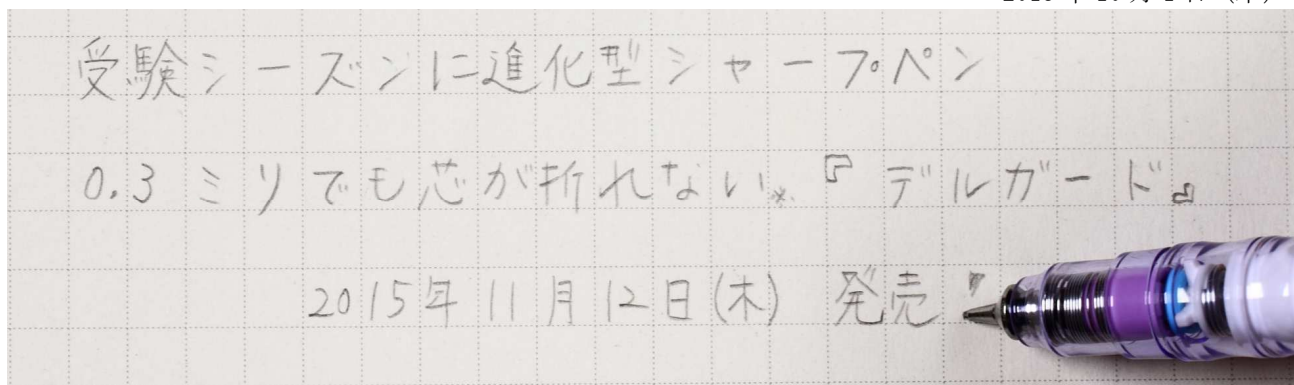 受験シーズンに進化型シャープペン
0.3ミリでも芯が折れない※『デルガード』
2015年11月12日(木) 発売